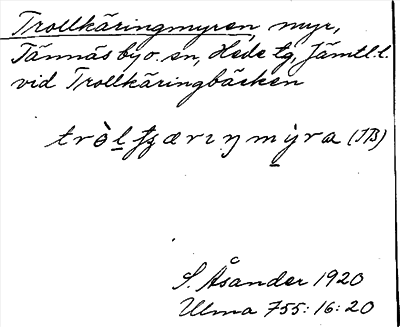 Trollkäringmyren, myr,
Tännäs by o. sn, Hede tg, Jämtl. l.
vid Trollkäringbäcken
(JB)
S. Åsander 1920
Ulma 755:16:20